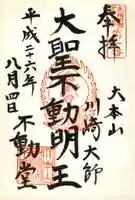 奉拝
大本山
川崎大師
大聖不動明王
不動堂
平成二十六年
八月四日